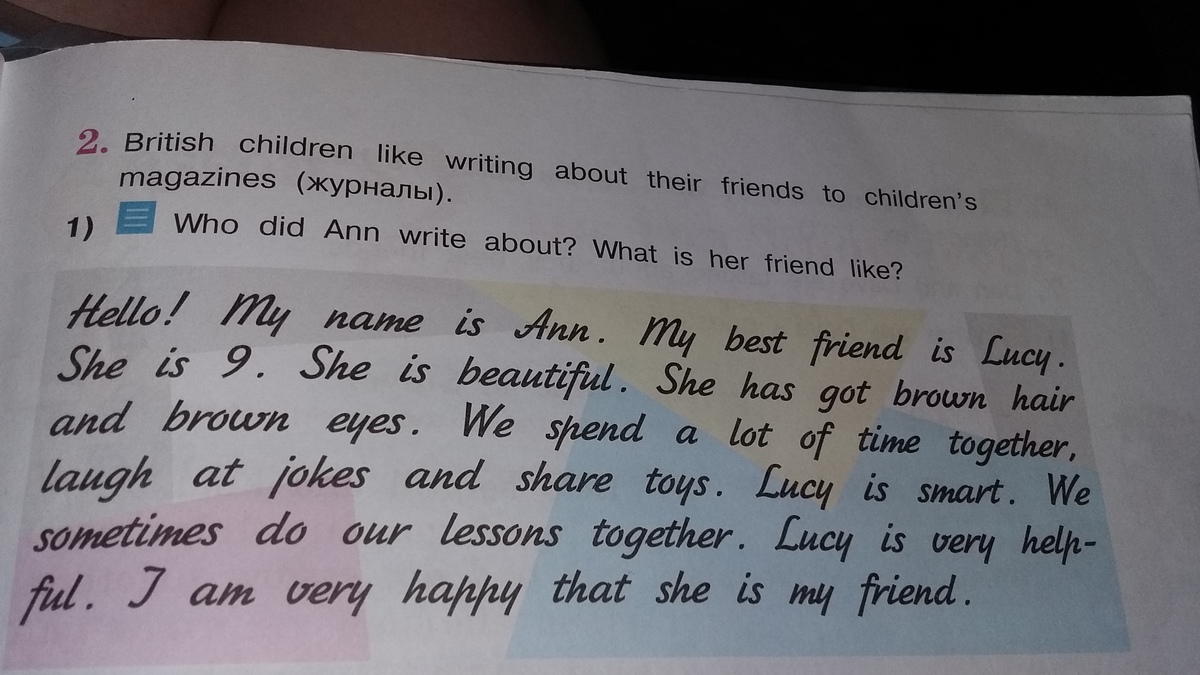 2. British children like writing about their friends to children's
magazines (журналы).
1) Who did Ann write about? What is her friend like?
Hello! My name is Ann. My best friend is Lucy.
She is 9. She is beautiful. She has got brown hair
and brown eyes. We spend a lot of time together,
laugh at jokes and share toys. Lucy is smart. We
sometimes do our lessons together. Lucy is very help-
ful. I am very happy that she is my friend.